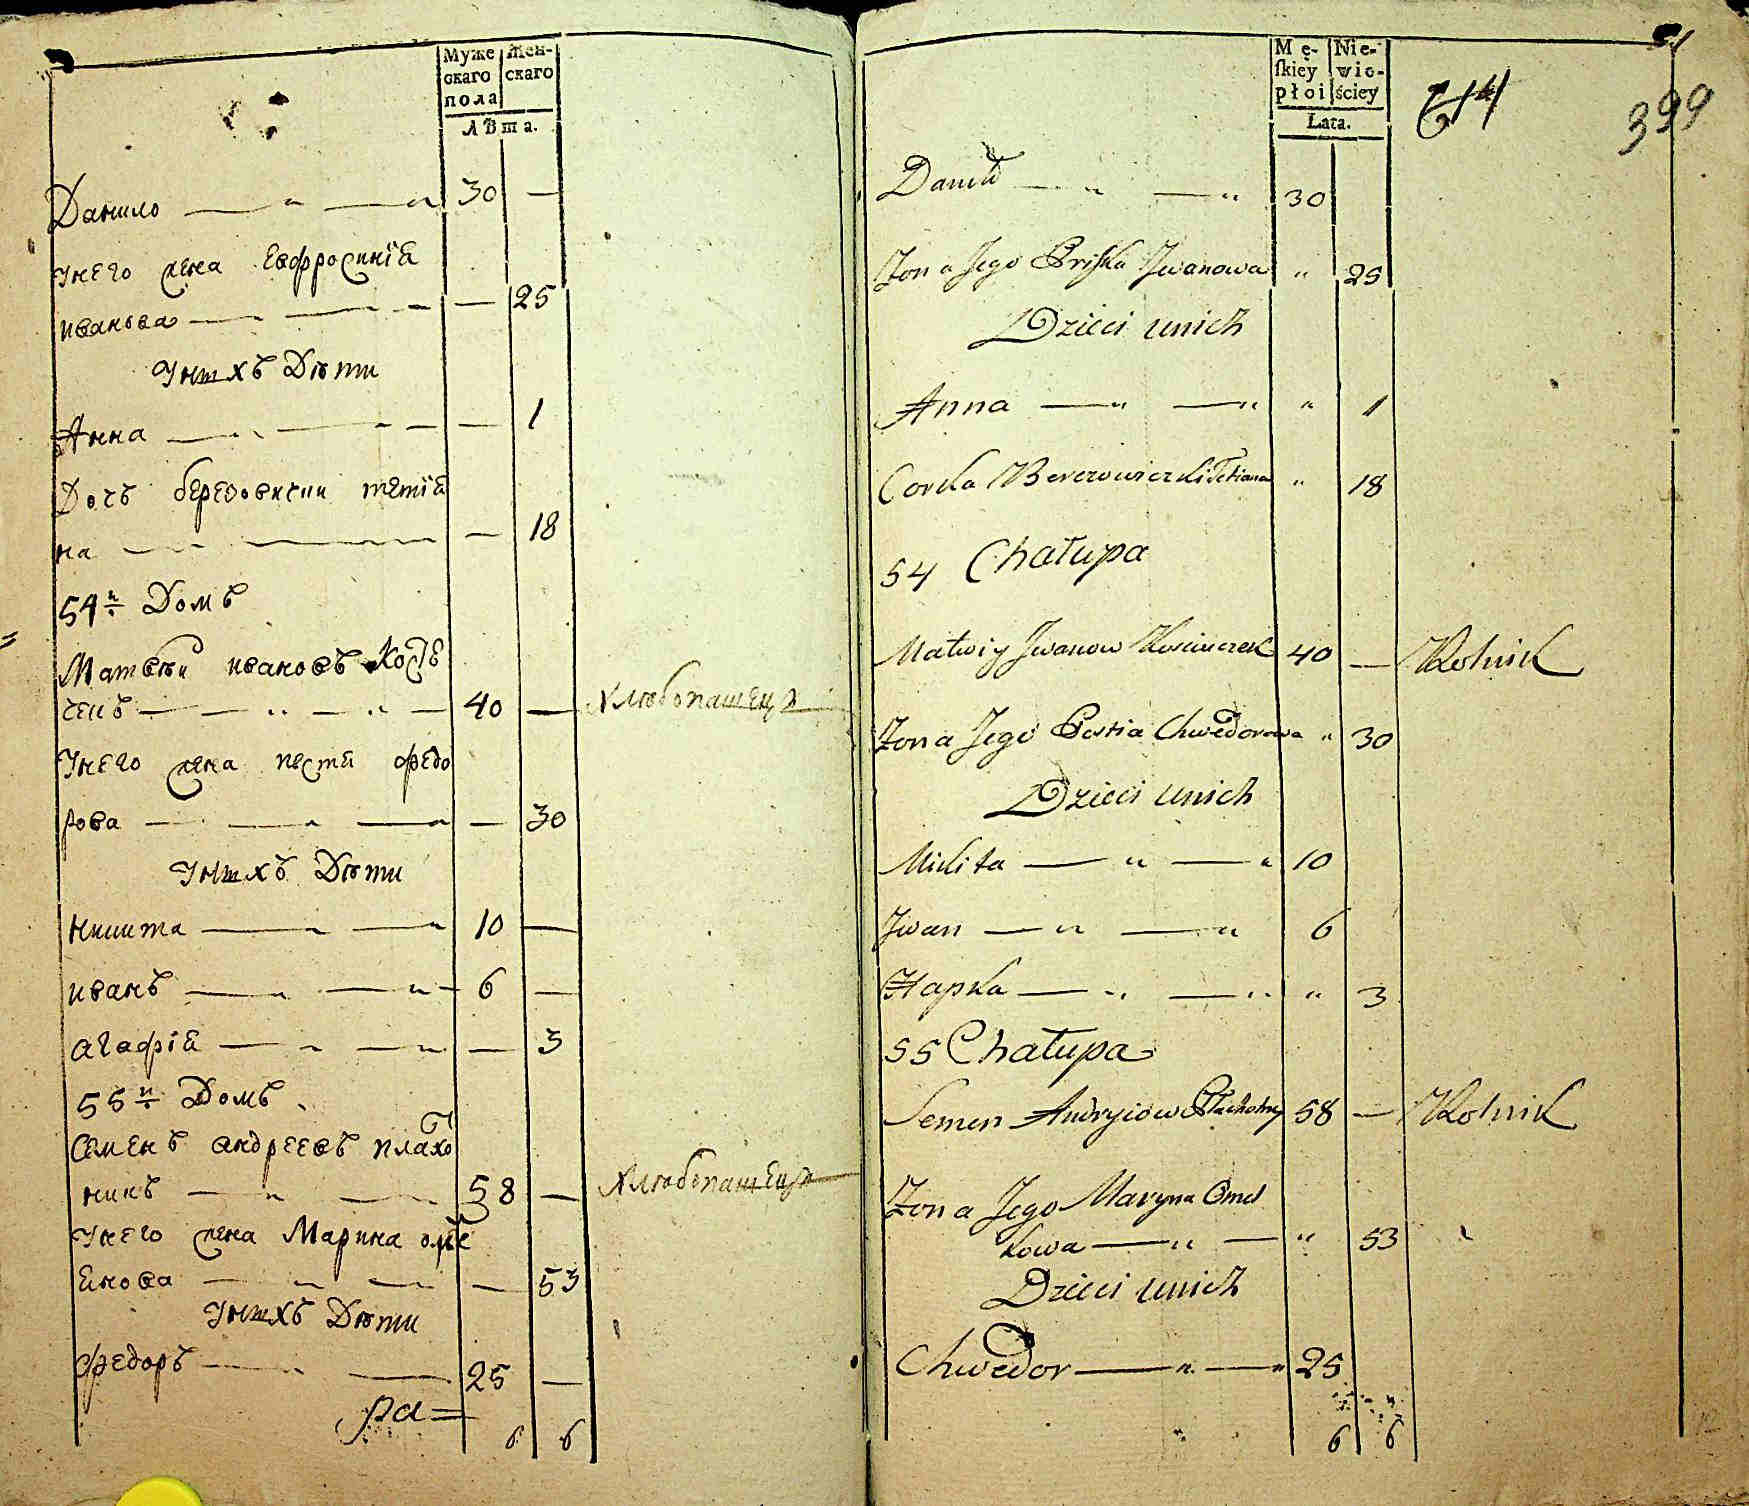 Муже Жен-
скаго скаго
пола
Лѣта.
Данило 30 —
унего жена Евфросинїя
иванова — 25
унихъ Дѣти
Анна — 1
Дочь березовички тетїя
на — 18
54й Домъ
Матвѣй ивановъ Косѣ
ченъ 40 — Хлѣбопашецъ
унего жена пестя федо
рова — 30
унихъ Дѣти
никита 10 —
иванъ 6 —
агафїя — 3
55й Домъ
Семенъ андреевъ плахо
никъ 58 — Хлѣбопашецъ
унего жена Марина омѣ
Янова — 53
унихъ Дѣти
федоръ 25 —
ра=
6 6
Mę- Nie-
skiey wie-
płoi ściey
Lata.
614
399
Daniło 30
Żona Jego Pryska Jwanowa " 25
Dzieci unich
Anna " 1
Corka Berezowiczki Tetiana " 18
54 Chałupa
Matwiy Jwanow Kosiuczek 40 — Rolnik
Żona Jego Pestia Chwedorowa " 30
Dzieci unich
Mikita 10
Jwan 6
Hapka " 3
55 Chałupa
Semen Andryiow Płachotny 58 — Rolnik
Żona Jego Maryna Omel
kowa " 53
Dzieci unich
Chwedor 25
6 6